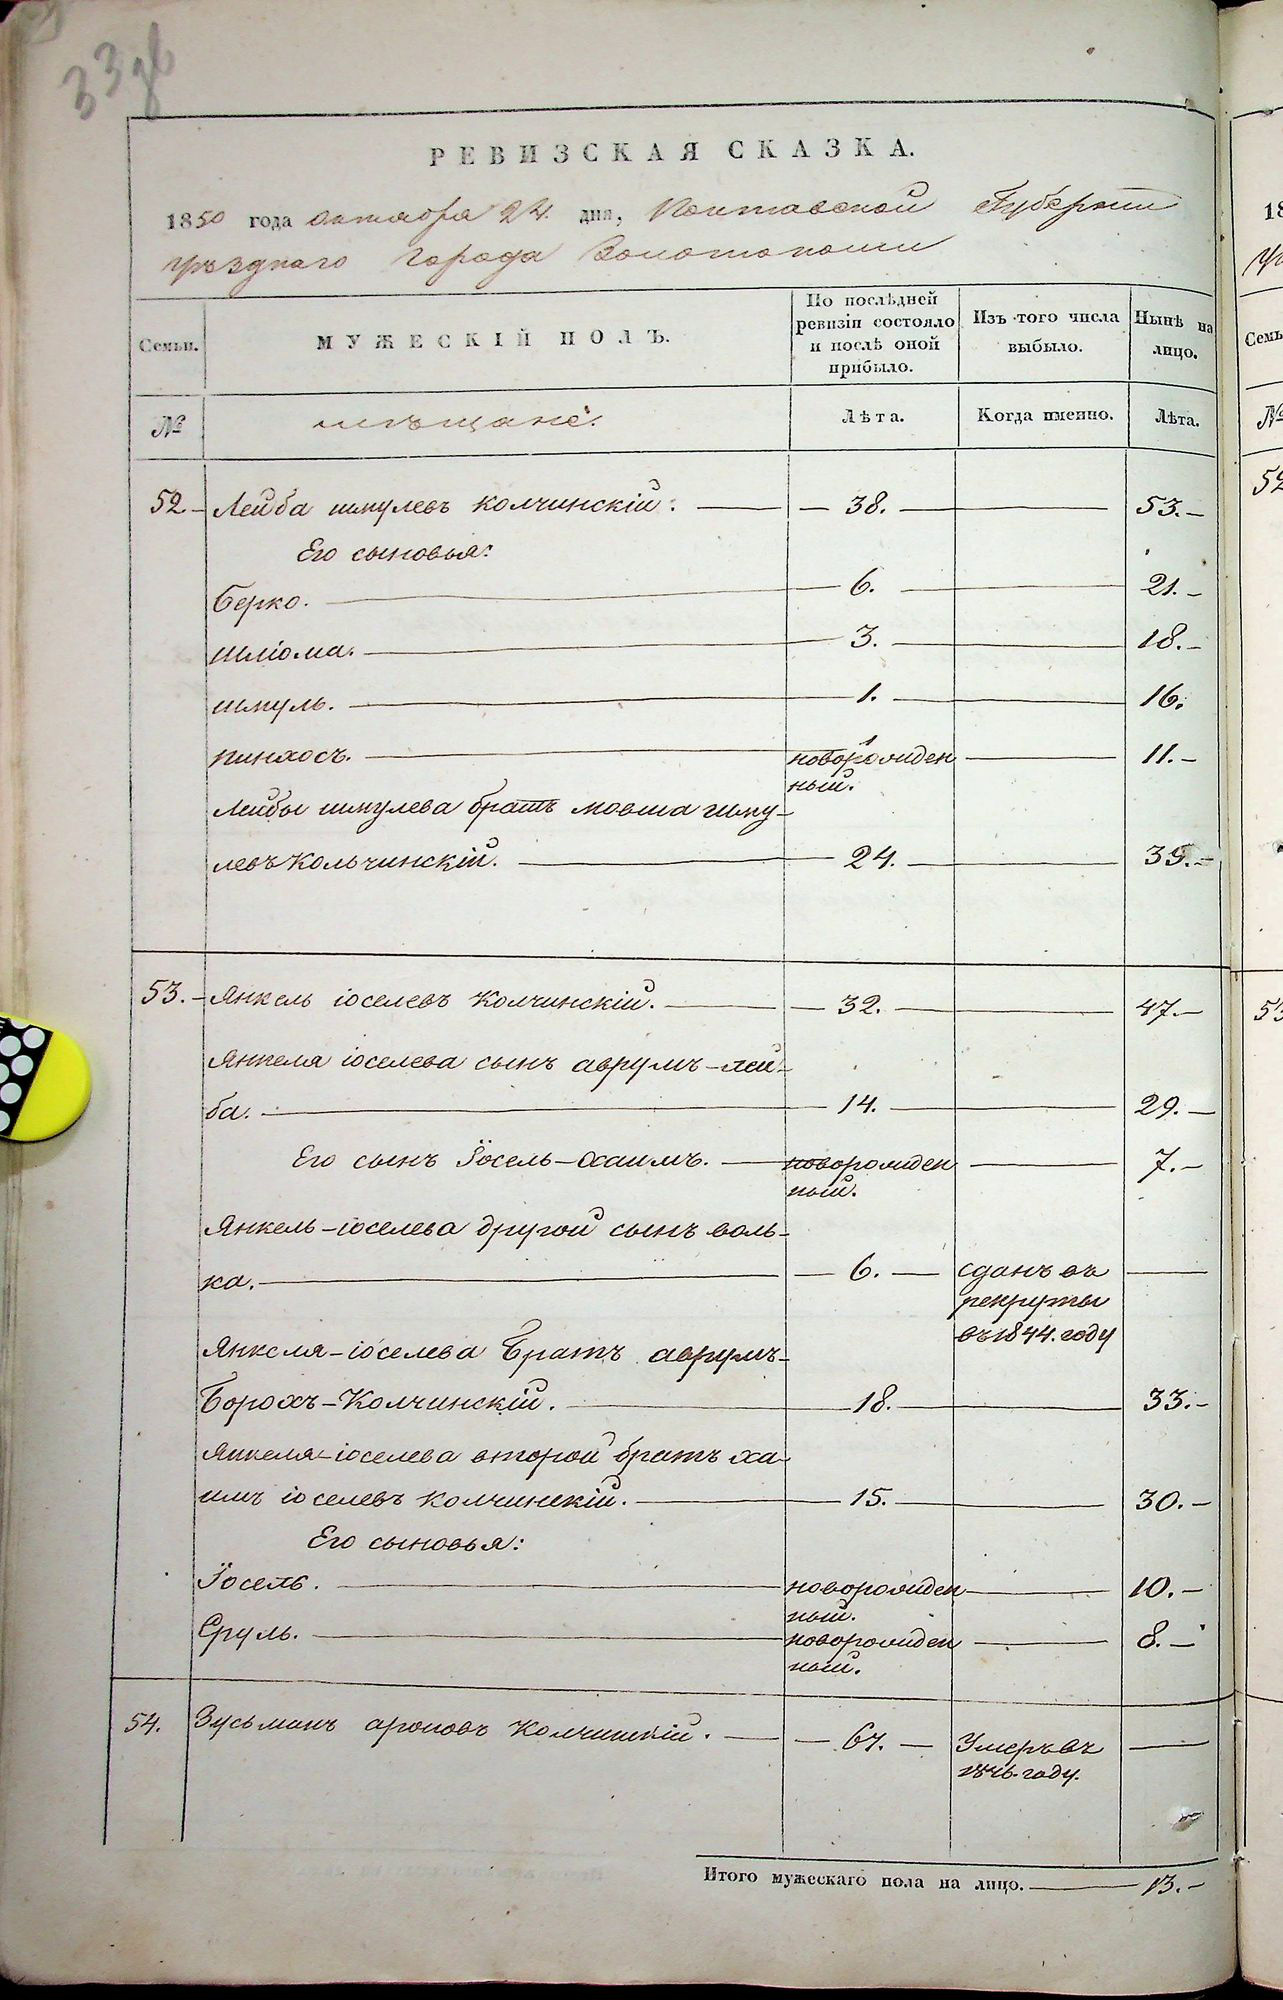 33 об
РЕВИЗСКАЯ СКАЗКА.
1850 года октября 24 дня, Полтавской Губерніи
уѣзднаго города Золотоноши
Семьи.
МУЖЕСКІЙ ПОЛЪ.
По послѣдней ревизіи состояло и послѣ оной прибыло.
Изъ того числа выбыло.
Нынѣ на лицо.
№
мѣщане:
Лѣта.
Когда именно.
Лѣта.
52 – Лейба шмулевъ колчинскій: — 38. — 53. –
Его сыновья:
Берко. — 6. — 21. –
шліома. — 3. — 18. –
шмуль. — 1. — 16.
пинхосъ. — новорожден — 11. –
ный.
Лейбы шмулева братъ мовша шму-
левъ Кольчинскій. — 24. — 39. –
53. – Янкель іоселевъ Колчинскій. — 32. — 47. –
Янкеля іоселева сынъ аврумъ – лей-
ба. — 14. — 29. –
Его сынъ Іосель – Хаимъ. — новорожден — 7. –
ный.
Янкель – іоселева другой сынъ воль-
ка. — 6. — сданъ въ —
рекруты
въ 1844. году
Янкеля – іоселева Братъ аврумъ-
Борохъ – Колчинскій. — 18. — 33. –
Янкеля – іоселева второй братъ ха-
имъ іоселевъ колчинскій. — 15. — 30. –
Его сыновья:
Іосель. — новорожден — 10. –
ный.
Сруль. — новорожден — 8. –
ный.
54. Зусьманъ ароновъ Колчинскій. — 67. — Умеръ въ —
1846. году.
Итого мужескаго пола на лицо. — 13. –
18
Семь
№
52
53